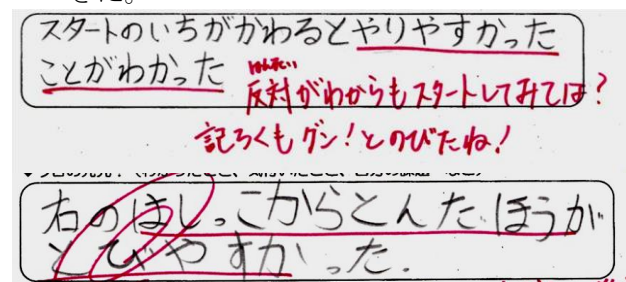 きた。
スタートのいちがかわるとやりやすかった
ことがわかった
はんたい
反対がわからもスタートしてみては?
記ろくもグン!とのびたね!
右のはしっこからとんだほうが
とびやすかった.